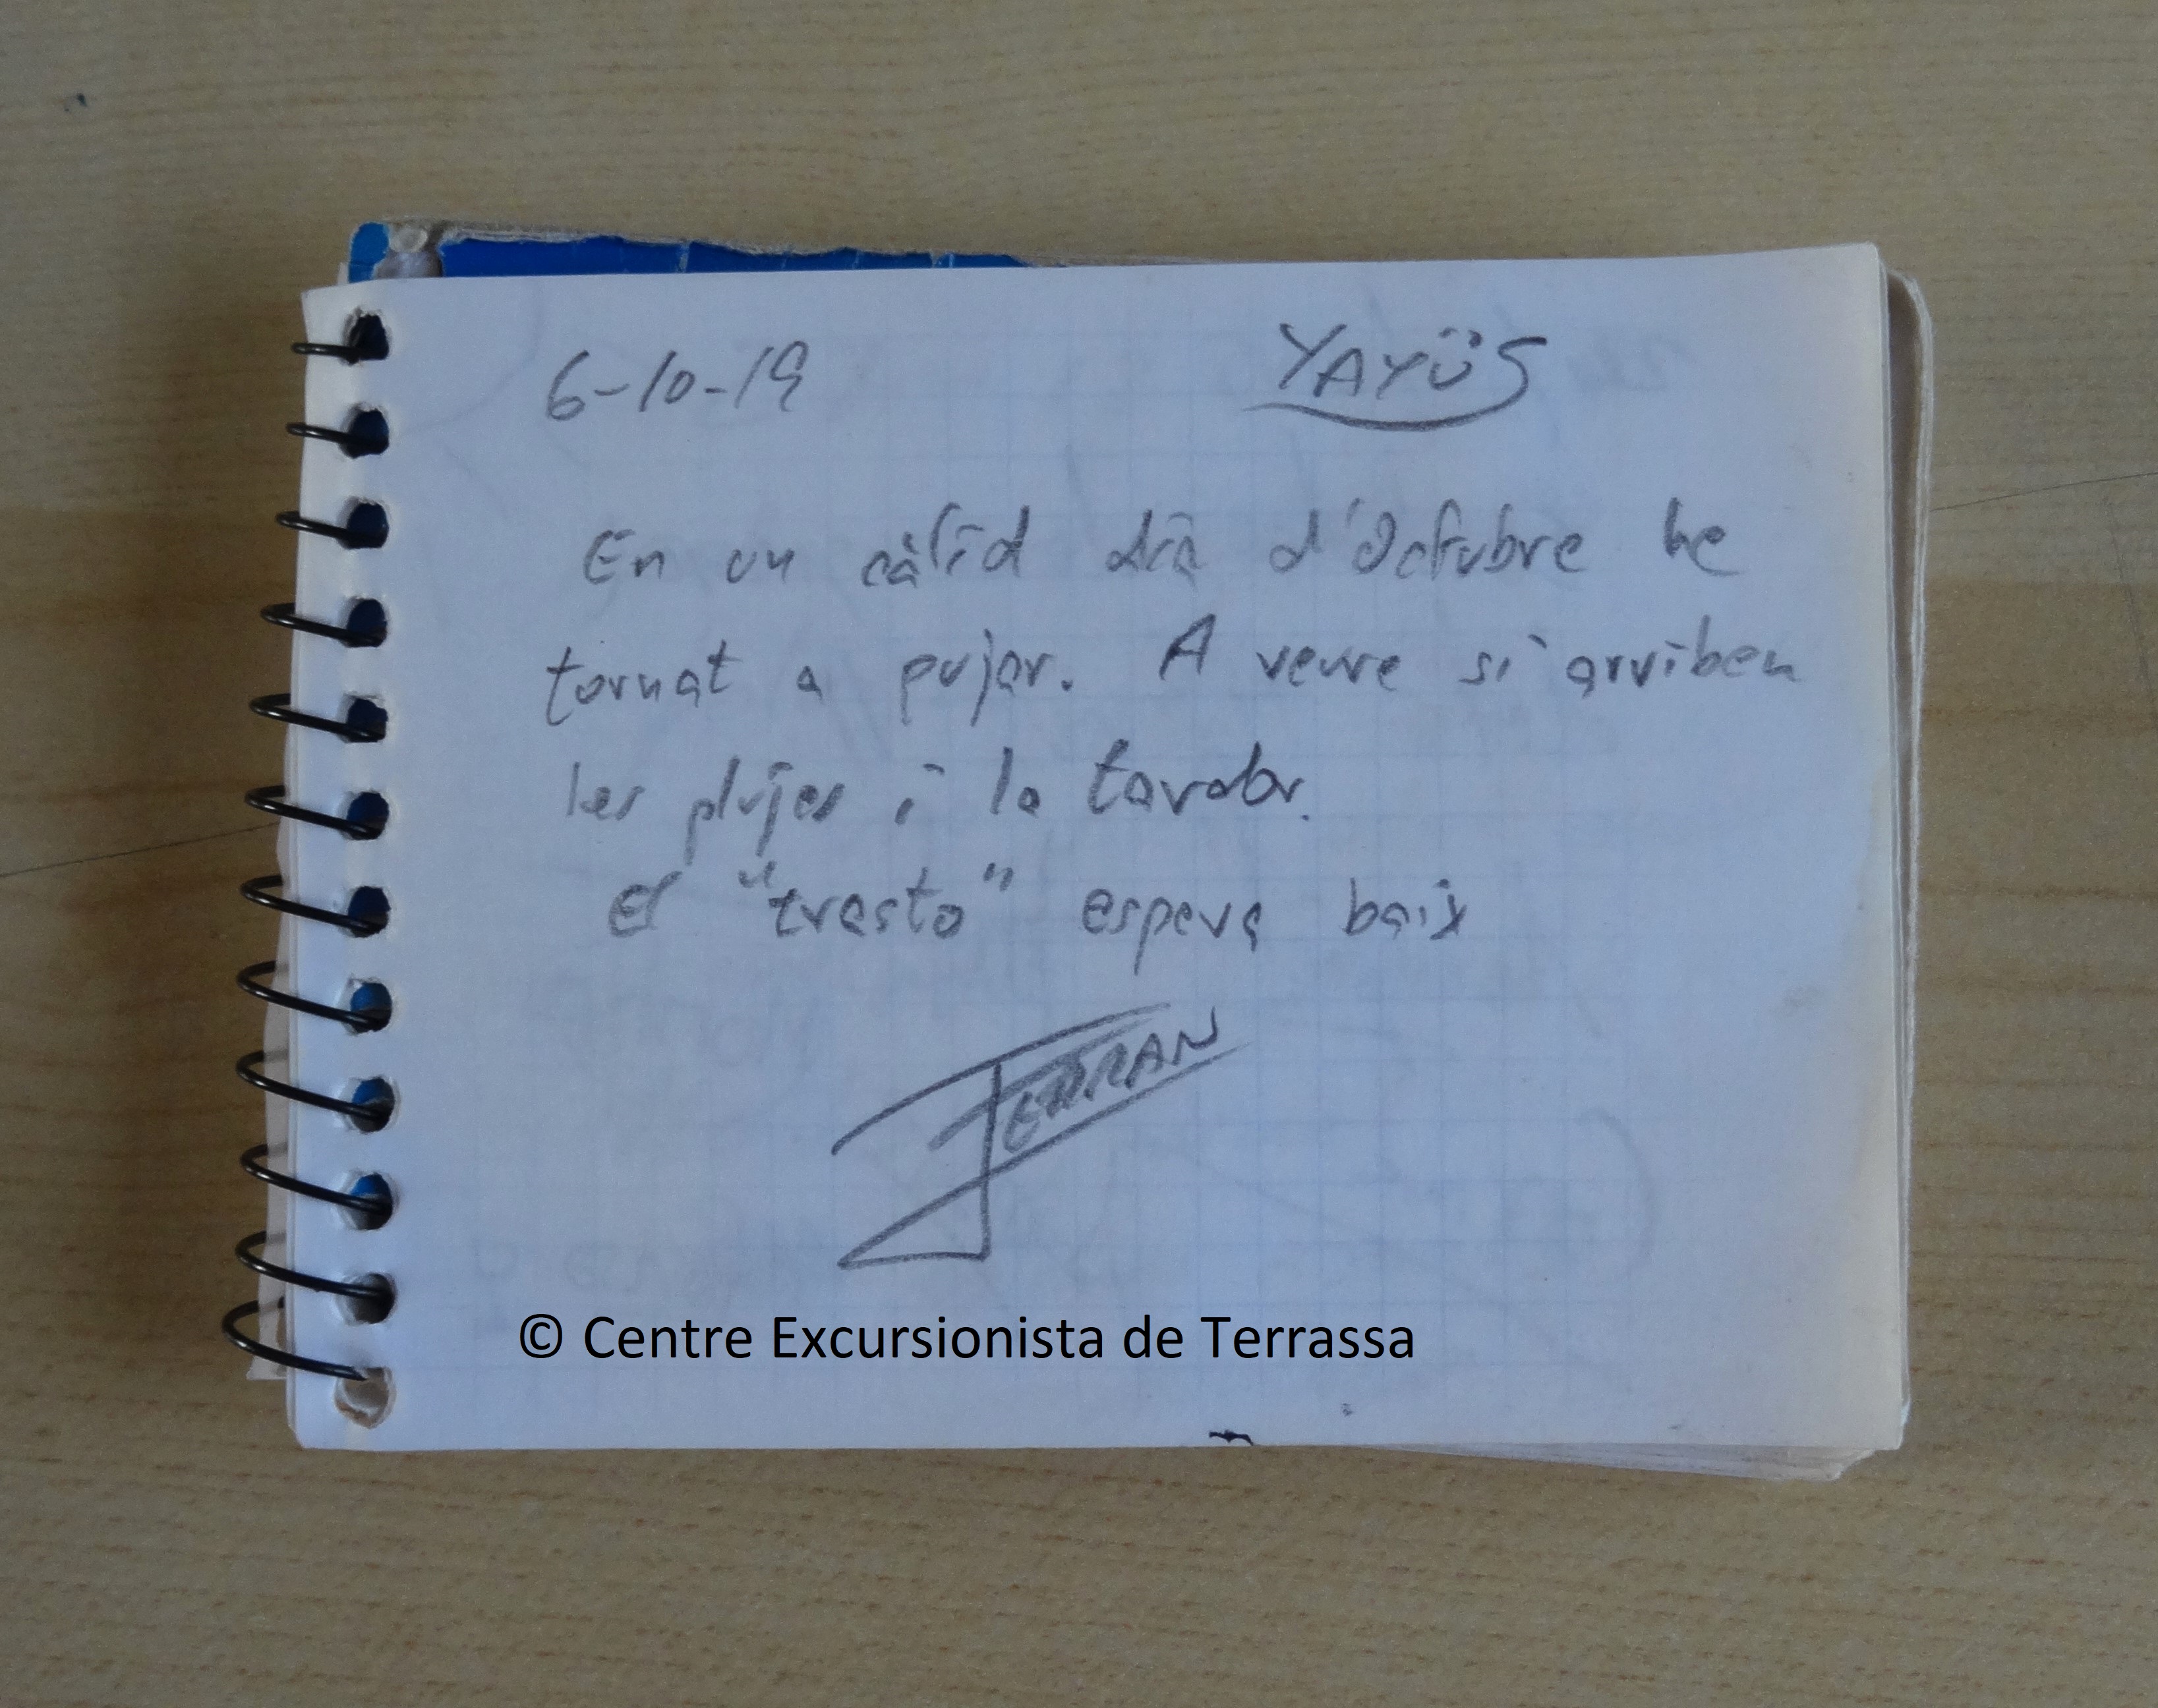 6-10-19 YAYÜS
En un càlid dia d'Octubre he
tornat a pujar. A veure si arriben
les plujes i la tardor.
El "trasto" espera baix
FERRAN
© Centre Excursionista de Terrassa